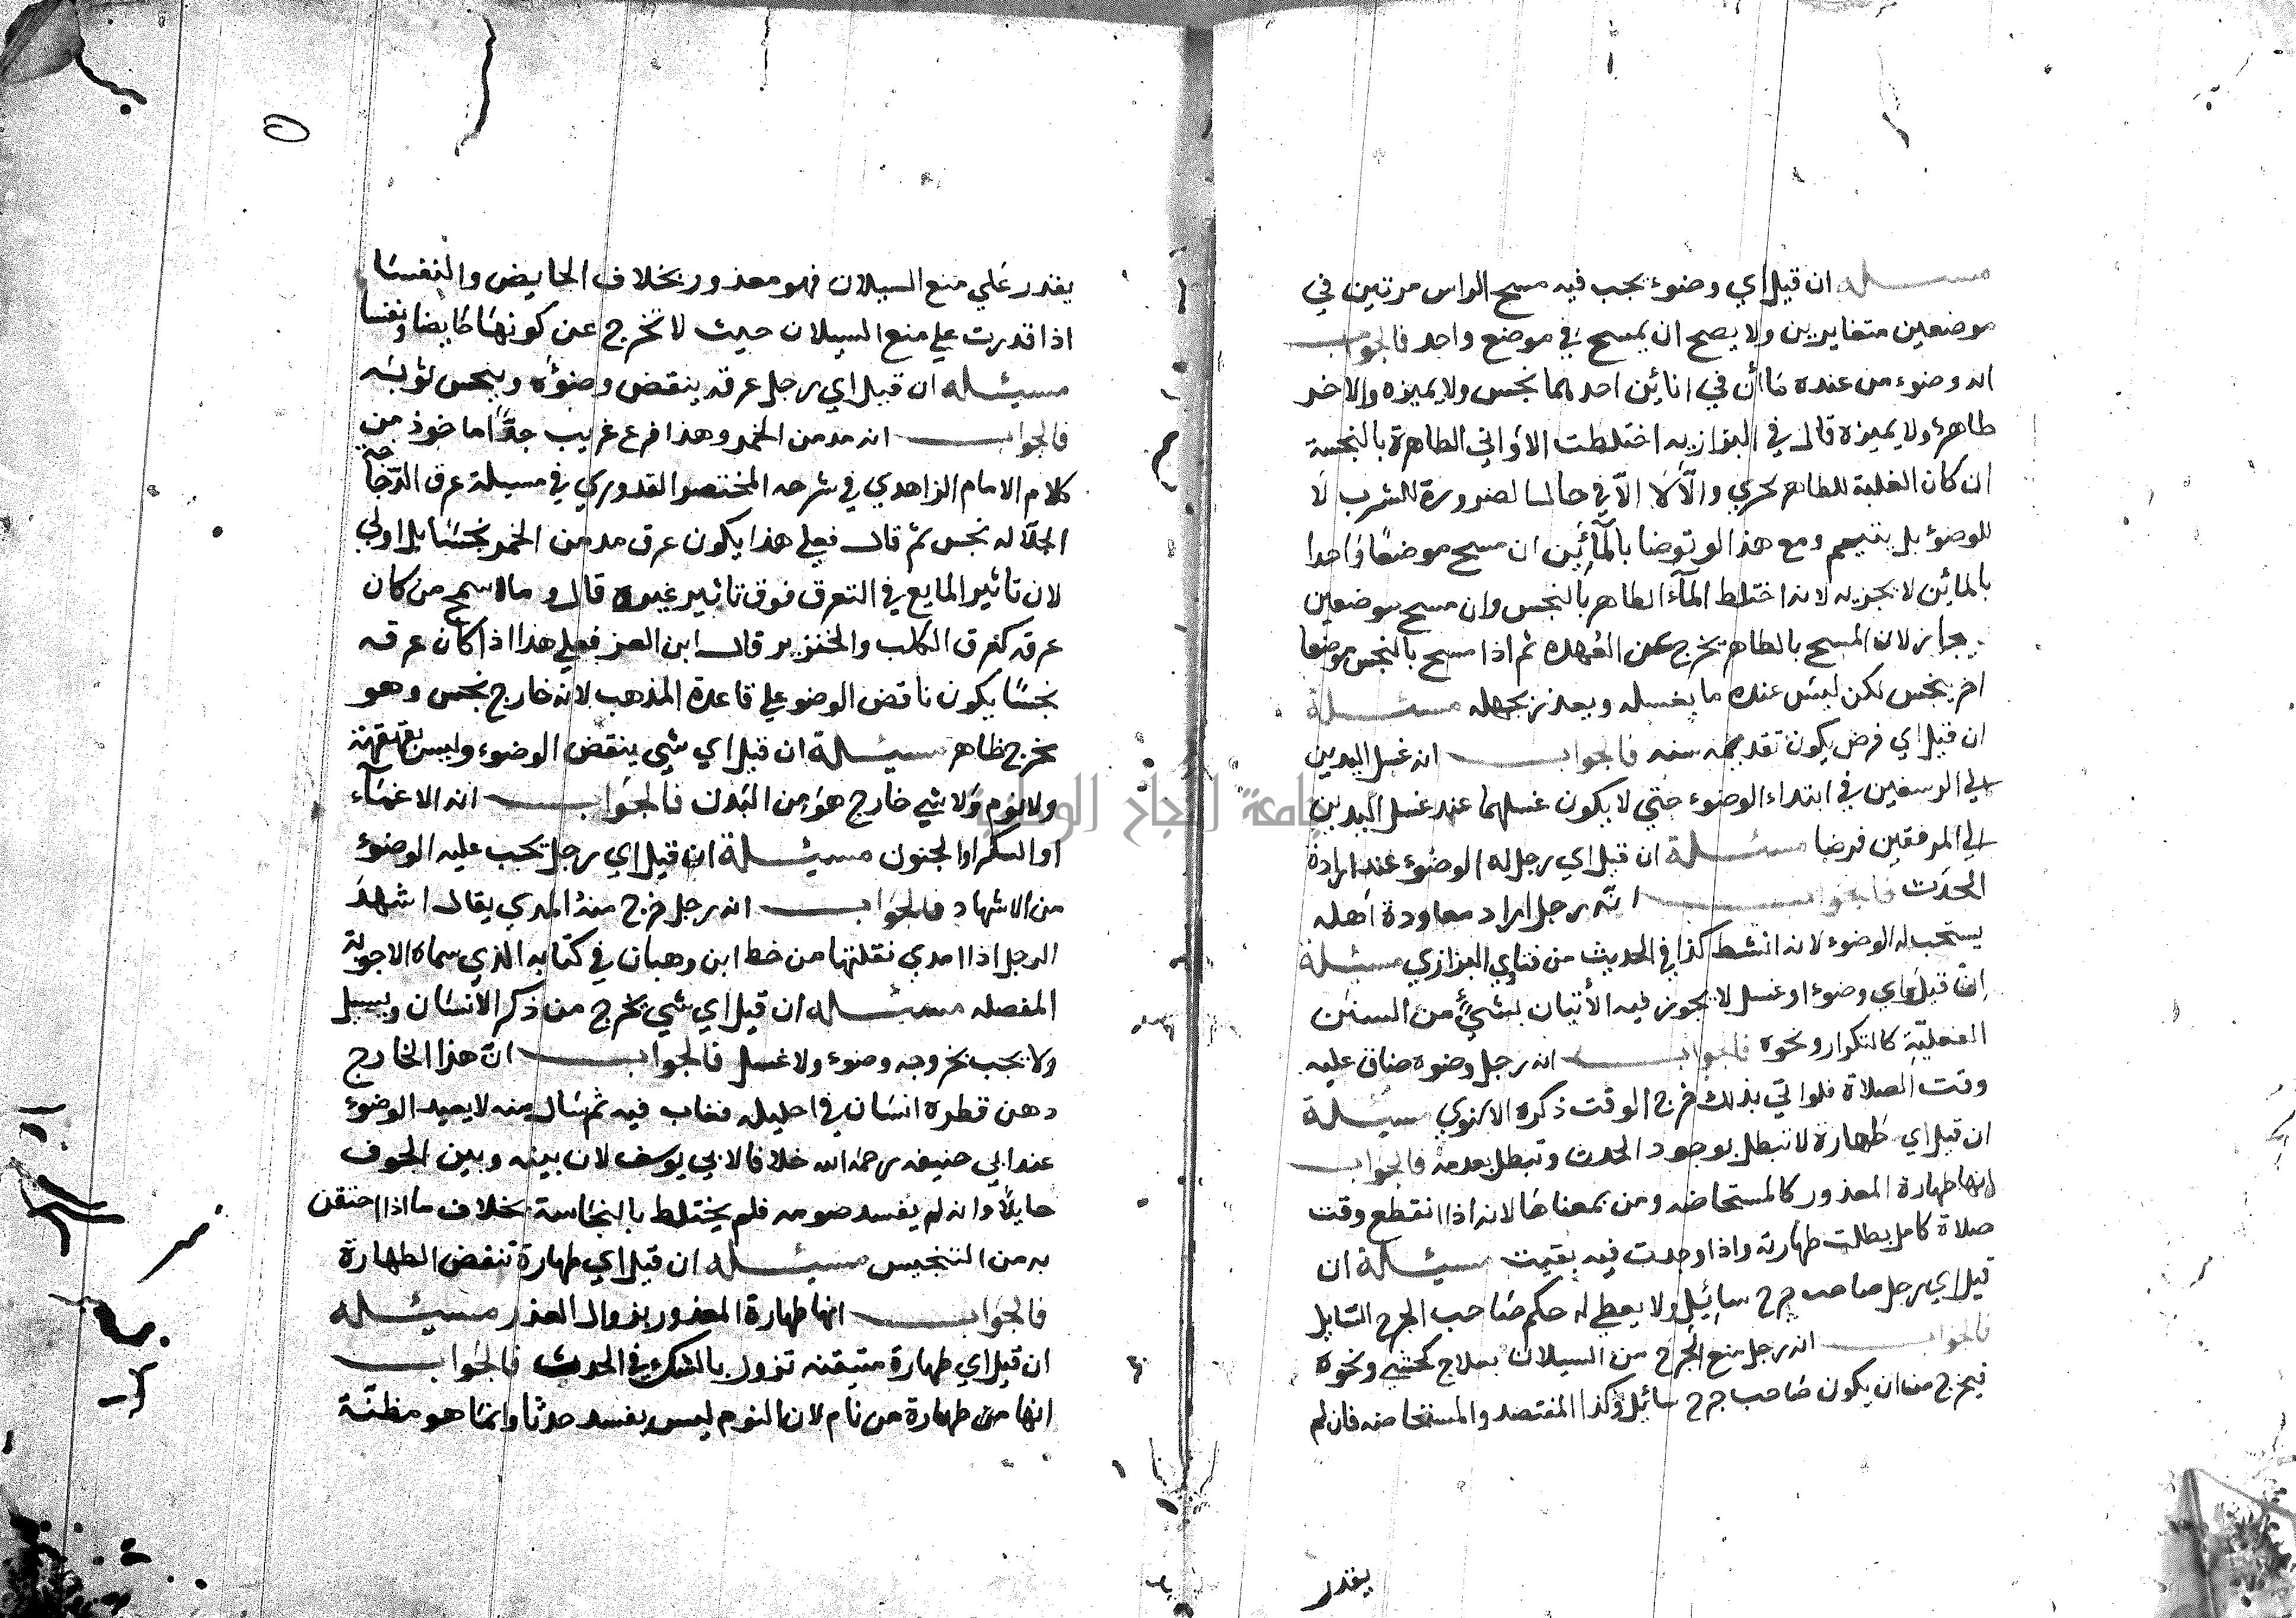 مسئلة ان قيل اي وضوء يجب فيه مسح الراس مرتين في
موضعين متغايرين ولا يصح ان يمسح في موضع واحد فالجواب
انه وضوء من عنده ماآن في انائين احدهما نجس ولا يميزه والاخر
طاهر ولا يميزه قال في البزازيه اختلطت الاواني الطاهرة بالنجسة
ان كان الغلبة للطاهر تحري والا لا الا في حالة الضرورة للشرب لا
للوضوء بل يتيمم ومع هذا لو توضا بالمائين ان مسح موضعا واحدا
بالمائين لا يجزيه لانه اختلط الماء الطاهر بالنجس وان مسح موضعين
جاز لان المسح بالطاهر يخرج عن العهده ثم اذا مسح بالنجس موضعا
اخر نجس لكن ليس عنده ما يغسله ويعذر بجهله مسئلة
ان قيل اي فرض يكون تقديمه سنه فالجواب انه غسل اليدين
الي الرسغين في ابتداء الوضوء حتي لا يكون غسلهما عند غسل اليدين
الي المرفقين فرضا مسئلة ان قيل اي رجل له الوضوء عند ارادة
الحدث فالجواب انه رجل اراد معاودة اهله
يستحب له الوضوء لانه انشط كذا في الحديث من فتاوي البزازي مسئلة
ان قيل اي وضوء او غسل لا يجوز فيه الاتيان بشيء من السنن
الفعلية كالتكرار ونحوه فالجواب انه رجل وضوه ضاق عليه
وقت الصلاة فلو اتي بذلك خرج الوقت ذكره الاسنوي مسئلة
ان قيل اي طهارة لا تبطل بوجود الحدث وتبطل بعدمه فالجواب
انها طهارة المعذور كالمستحاضه ومن بمعناها لانه اذا انقطع وقت
صلاة كامل بطلت طهارته واذا وجدت فيه بقيت مسئلة ان
قيل اي رجل صاحب جرح سائل ولا يعطي له حكم صاحب الجرح السايل
فالجواب انه رجل منع الجرح من السيلان بعلاج كحشي ونحوه
فيخرج من ان يكون صاحب جرح سائل وكذا المفتصد والمستحاضه فان لم
يقدر
يقدر علي منع السيلان فهو معذور بخلاف الحايض والنفسا
اذا قدرت علي منع السيلان حيث لا تخرج عن كونها حايضا ونفسا
مسئله ان قيل اي رجل عرقه ينقض وضوءه وينجس ثوبه
فالجواب انه مدمن الخمر وهذا فرع غريب جدا ماخوذ من
كلام الامام الزاهدي في شرحه المختصر القدوري في مسيلة عرق الدجاجة
الجلاله نجس ثم قال فعلي هذا يكون عرق مدمن الخمر نجسا بل اولي
لان تاثير المايع في التعرق فوق تاثير غيره قال وما اسمج من كان
عرقه كعرق الكلب والخنزير قال ابن العز فعلي هذا اذا كان عرقه
نجسا يكون ناقض الوضو علي قاعدة المذهب لانه خارج نجس وهو
مخرج ظاهر مسئلة ان قيل اي شي ينقض الوضوء وليس بقهقهة
ولا نوم ولا شي خارج هو من البدن فالجواب انه الاغماء
او السكر او الجنون مسئلة ان قيل اي رجل يجب عليه الوضوء
من الاشهاد فالجواب انه رجل خرج منه المدي يقال اشهد
الرجل اذا امدي نقلتها من خط ابن وهبان في كتابه الذي سماه الاجوبة
المفصله مسئله ان قيل اي شي يخرج من ذكر الانسان ويسيل
ولا يجب بخروجه وضوء ولا غسل فالجواب ان هذا الخارج
دهن قطره انسان في احليله فغاب فيه ثم سال منه لا يعيد الوضوء
عند ابي حنيفه رحمه الله خلافا لابي يوسف لان بينه وبين الجوف
حايلا وانه لم يفسد صومه فلم يختلط بالنجاسة بخلاف ما اذا احتقن
به من التنجيس مسئله ان قيل اي طهارة تنقض الطهارة
فالجواب انها طهارة المعذور بزوال العذر مسئله
ان قيل اي طهارة متيقنه تزول بالشك في الحدث فالجواب
انها من طهارة من نام لان النوم ليس بفسد حدثا وانما هو مظنة
جامعة النجاح الوطنية